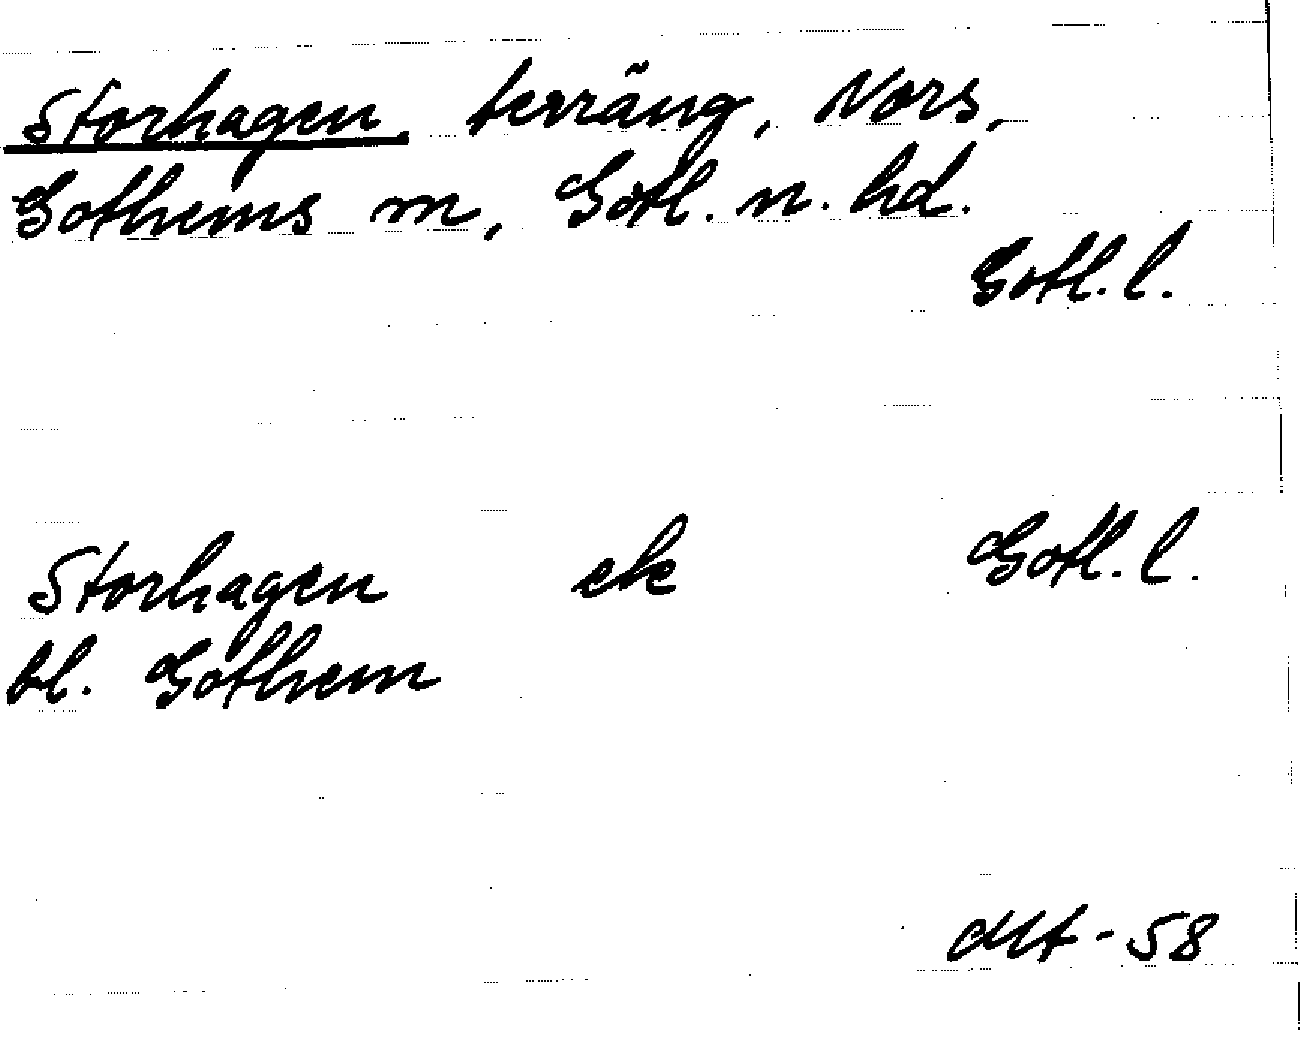 Storhagen, terräng, Nors,
Gothems sn, Gotl. n. hd.
Gotl. l.
Storhagen ek Gotl. l.
bl. Gothem
-58